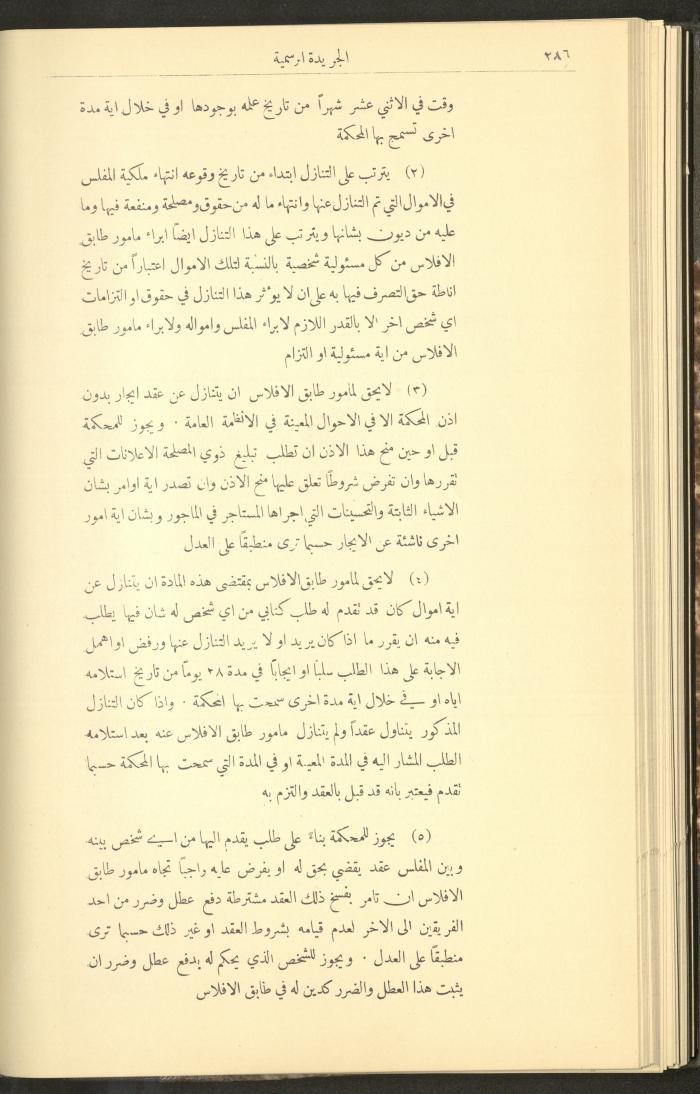 ٢٨٦
الجريدة الرسمية
وقت في الاثني عشر شهراً من تاريخ علمه بوجودها او في خلال اية مدة
اخرى تسمح بها المحكمة
(٢) يترتب على التنازل ابتداء من تاريخ وقوعه انتهاء ملكية المفلس
في الاموال التي تم التنازل عنها وانتهاء ما له من حقوق ومصلحة ومنفعة فيها وما
عليه من ديون بشانها ويترتب على هذا التنازل ايضاً ابراء مامور طابق
الافلاس من كل مسئولية شخصية بالنسبة لتلك الاموال اعتباراً من تاريخ
اناطة حق التصرف فيها به على ان لا يوٴثر هذا التنازل في حقوق او التزامات
اي شخص اخر الا بالقدر اللازم لابراء المفلس وامواله ولابراء مامور طابق
الافلاس من اية مسئولية او التزام
(٣) لايحق لمامور طابق الافلاس ان يتنازل عن عقد ايجار بدون
اذن المحكمة الا في الاحوال المعينة في الانظمة العامة . ويجوز للمحكمة
قبل او حين منح هذا الاذن ان تطلب تبليغ ذوي المصلحة الاعلانات التي
تقررها وان تفرض شروطاً تعلق عليها منح الاذن وان تصدر اية اوامر بشان
الاشياء الثابتة والتحسينات التي اجراها المستاجر في الماجور وبشان اية امور
اخرى ناشئة عن الايجار حسبما ترى منطبقاً على العدل
(٤) لايحق لمامور طابق الافلاس بمقتضى هذه المادة ان يتنازل عن
اية اموال كان قد تقدم له طلب كتابي من اي شخص له شان فيها يطلب
فيه منه ان يقرر ما اذا كان يريد او لا يريد التنازل عنها ورفض او اهمل
الاجابة على هذا الطلب سلباً او ايجاباً في مدة ٢٨ يوماً من تاريخ استلامه
اياه او في خلال اية مدة اخرى سمحت بها المحكمة . واذا كان التنازل
المذكور يتناول عقداً ولم يتنازل مامور طابق الافلاس عنه بعد استلامه
الطلب المشار اليه في المدة المعينة او في المدة التي سمحت بها المحكمة حسبما
تقدم فيعتبر بانه قد قبل بالعقد والتزم به
(٥) يجوز للمحكمة بناءً على طلب يقدم اليها من اي شخص بينه
وبين المفلس عقد يقضي بحق له او يفرض عليه واجباً تجاه مامور طابق
الافلاس ان تامر بفسخ ذلك العقد مشترطة دفع عطل وضرر من احد
الفريقين الى الاخر لعدم قيامه بشروط العقد او غير ذلك حسبما ترى
منطبقاً على العدل . ويجوز للشخص الذي يحكم له بدفع عطل وضرر ان
يثبت هذا العطل والضرر كدين له في طابق الافلاس